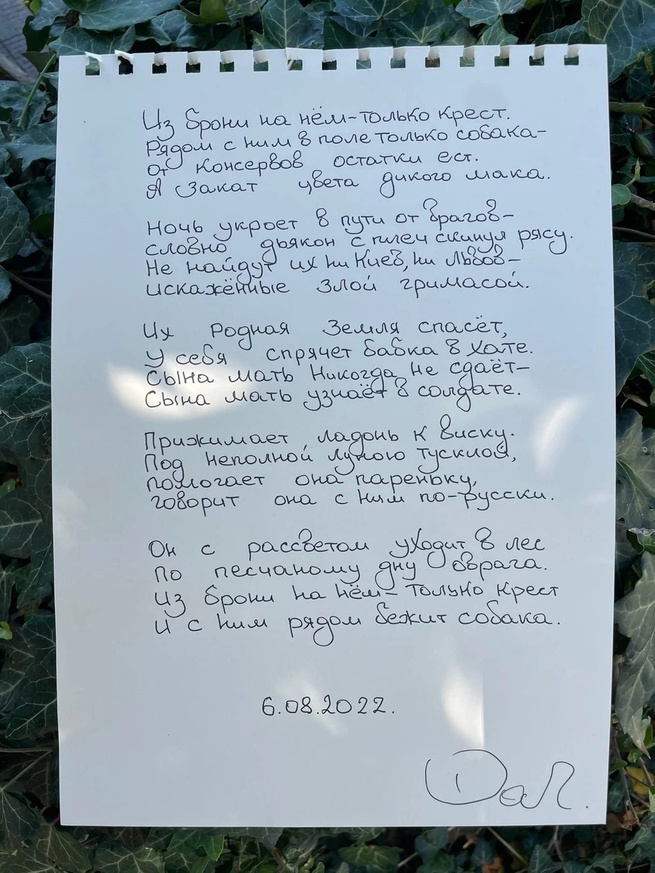 Из брони на нём-только крест.
Рядом с ним в поле только собака-
от консервов остатки ест.
А закат цвета дикого мака.
Ночь укроет в пути от врагов-
словно дьякон с плеч скинул рясу.
Не найдут их ни Киев, ни Львов-
искажённые злой гримасой.
Их родная земля спасёт,
У себя спрячет бабка в хате.
Сына мать никогда не сдаёт-
Сына мать узнаёт в солдате.
Прижимает ладонь к виску.
Под неполной луною тусклой,
помогает она пареньку,
говорит она с ним по-русски.
Он с рассветом уходит в лес
По песчаному дну оврага.
Из брони на нём- только крест
И с ним рядом бежит собака.
6.08.2022.